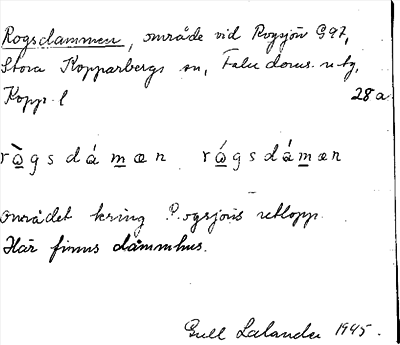 Rogsdammen, område vid Rogsjön G97,
Stora Kopparbergs sn, Falu doms. n tg,
Kopp. l 28a
rògsdámæn rógsdámæn
området kring Rogsjöns utlopp.
Här finns dammhus.
Gull Lalander 1945.